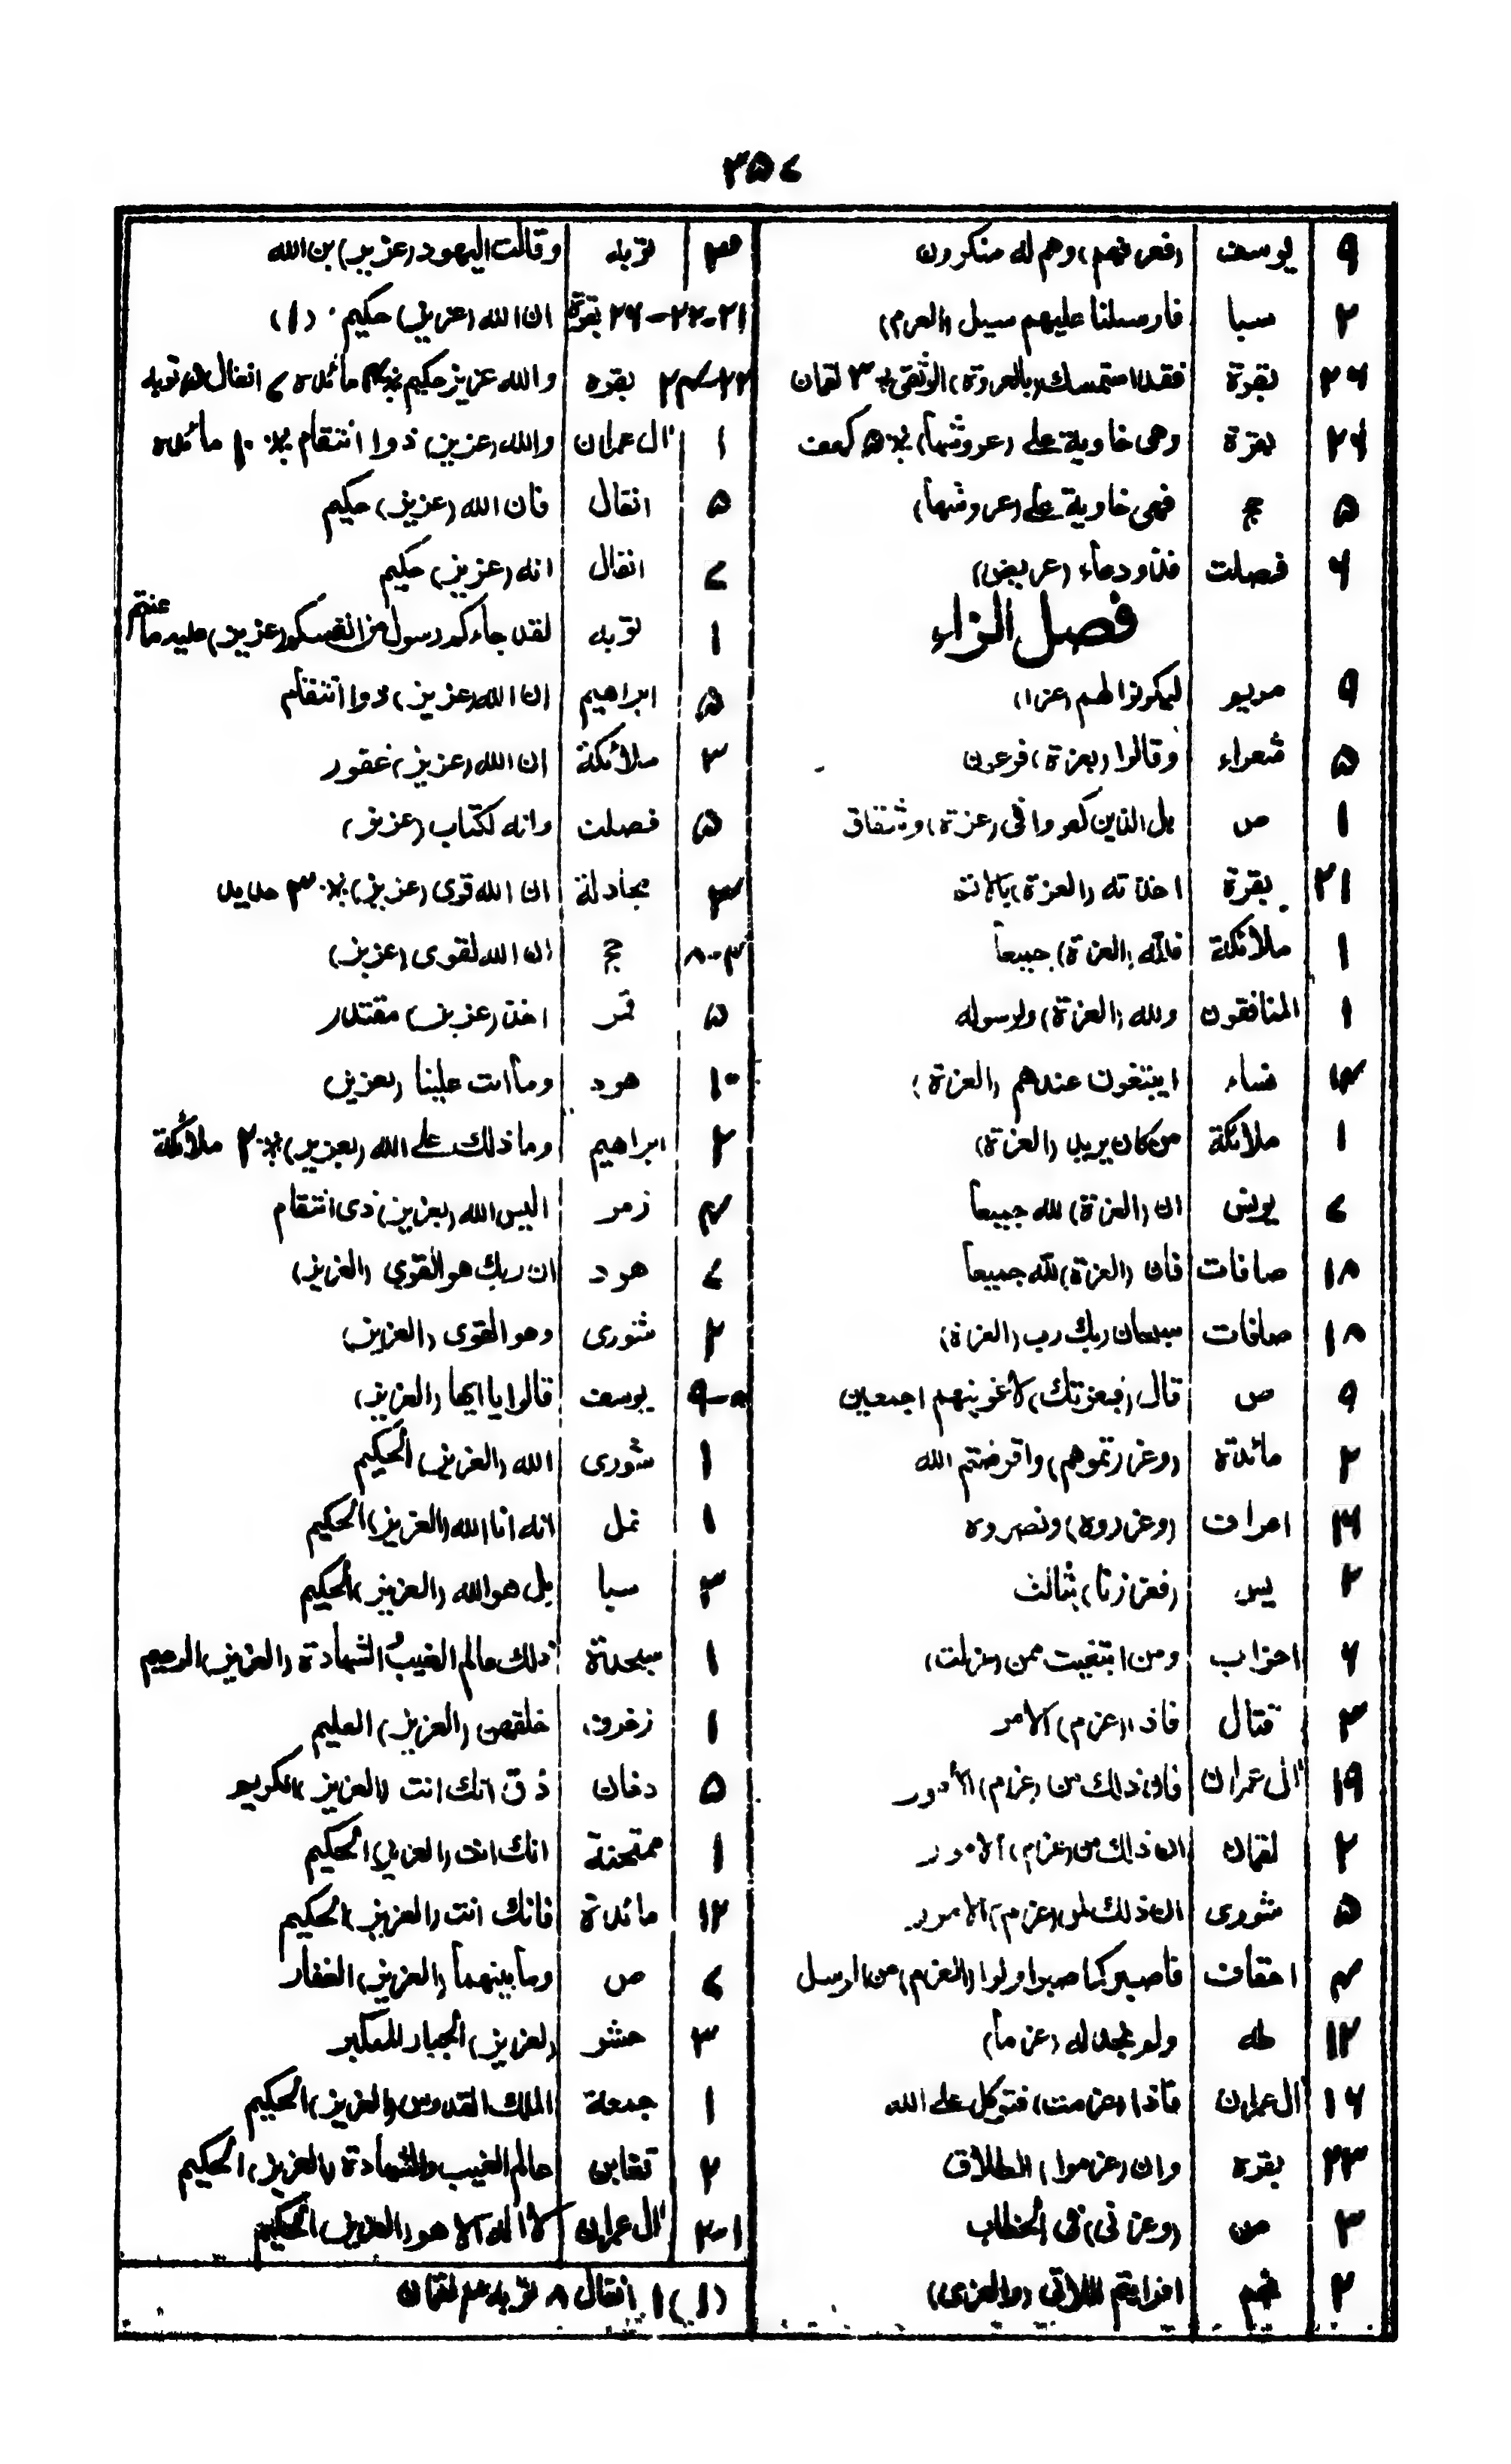 ۳۵۷
۹ يوسف (فعرفهم) وهم له منكرون
۲ سبا فارسلنا عليهم سيل (العرم)
۲۶ بقرة فقد استمسك (بالعروة) الوثقى ۳ لقمان
۲۶ بقرة وهى خاوية على (عروشها) ۵ كهف
۵ حج فهى خاوية على (عروشها)
۶ فصلت فذو دعاء (عريض)
فصل الزاء
۹ مريم ليكونوا لهم (عزا)
۵ شعراء وقالوا (بعزة) فرعون
۱ ص بل الذين كفروا فى (عزة) وشقاق
۲۱ بقرة اخذته (العزة) بالاثم
۱ ملائكة فلله (العزة) جميعا
۱ المنافقون ولله (العزة) ولرسوله
۱۴ نساء ايبتغون عندهم (العزة)
۱ ملائكة من كان يريد (العزة)
۷ يونس ان (العزة) لله جميعا
۱۸ صافات فان (العزة) لله جميعا
۱۸ صافات سبحان ربك رب (العزة)
۹ ص قال (فبعزتك) لاغوينهم اجمعين
۲ مائدة (وعزرتموهم) واقرضتم الله
۳ اعراف (وعزروه) ونصروه
۲ يس (فعززنا) بثالث
۶ احزاب ومن ابتغيت ممن (عزلت)
۳ قتال فاذا (عزم) الامر
۱۹ ال عمران فان ذلك من (عزم) الأمور
۲ لقمان ان ذلك من (عزم) الامور
۵ شورى ان ذلك لمن (عزم) الامور
۴ احقاف فاصبر كما صبر اولوا (العزم) من الرسل
۱۲ طه ولم نجد له (عزما)
۱۶ ال عمران فاذا (عزمت) فتوكل على الله
۲۳ بقره وان (عزموا) الطلاق
۳ ص (وعزنى) فى الخطاب
۲ نجم افرايتم اللاتى (والعزى)
۳ توبه وقالت اليهود (عزير) بن الله
۲۱-۲۲-۲۶ بقرة ان الله (عزيز) حكيم (۱)
۲۲-۲۴ بقره والله عزيز حكيم مائده ۷ انفال توبه
۱ ال عمران والله (عزيز) ذوا انتقام ۱۰ مائده
۵ انفال فان الله (عزيز) حكيم
۷ انفال انه (عزيز) حكيم
۱ توبه لقد جاءكم رسول من انفسكم (عزيز) عليه ما عنتم
۵ ابراهيم ان الله (عزيز) ذوا انتقام
۳ ملائكة ان الله (عزيز) غفور
۵ فصلت وانه لكتاب (عزيز)
۳ مجادلة ان الله قوى (عزيز) ۳ حديد
۴-۸ حج ان الله لقوى (عزيز)
۵ قمر اخذ (عزيز) مقتدر
۱۰ هود وما انت علينا (بعزيز)
۲ ابراهيم وما ذلك على الله (بعزيز) ۲ ملائكة
۴ زمر اليس الله (بعزيز) ذى انتقام
۷ هود ان ربك هو القوي (العزيز)
۲ شورى وهو القوى (العزيز)
۸-۹ يوسف قالوا يا ايها (العزيز)
۱ شورى الله (العزيز) الحكيم
۱ نمل انه انا الله (العزيز) الحكيم
۳ سبا بل هو الله (العزيز) الحكيم
۱ سجدة ذلك عالم الغيب والشهادة (العزيز) الرحيم
۱ زخرف خلقهن (العزيز) العليم
۵ دخان ذق انك انت (العزيز) الكريم
۱ ممتحنة انك انت (العزيز) الحكيم
۱۲ مائدة فانك انت (العزيز) الحكيم
۷ ص وما بينهما (العزيز) الغفار
۳ حشر (العزيز) الجبار المتكبر
۱ جمعة الملك القدوس (العزيز) الحكيم
۲ تغابن عالم الغيب والشهادة (العزيز) الحكيم
۱-۲ ال عمران لا اله الا هو (العزيز) الحكيم
(۱) انفال ۸ توبه ۳ لقمان